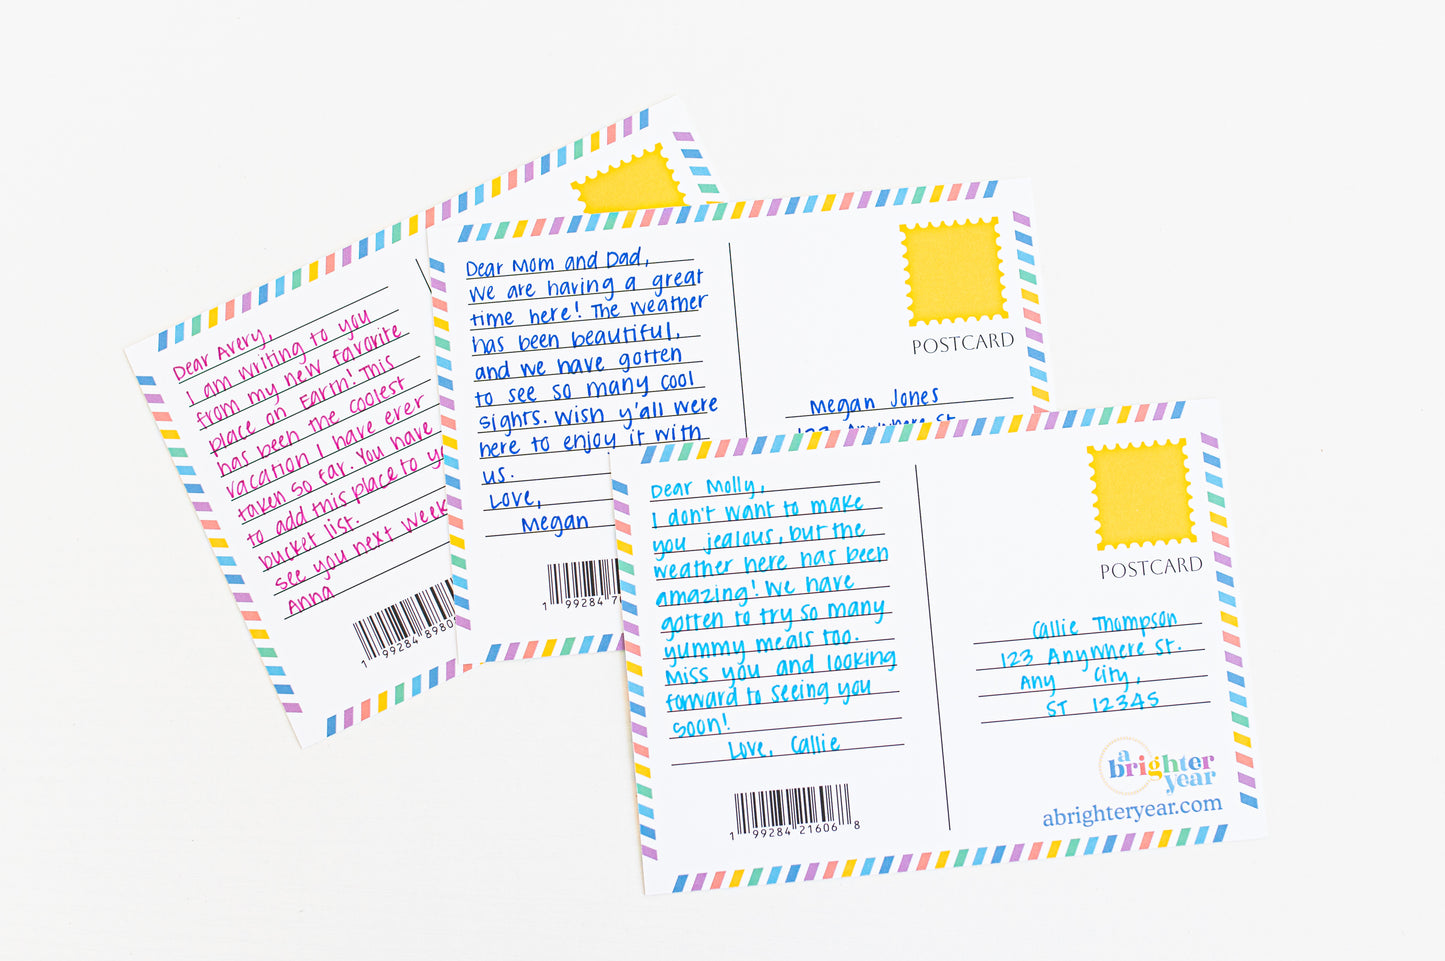 Dear Avery,
I am writing to you
from my new favorite
place on Earth! This
has been the coolest
vacation I have ever
taken so far. You have
to add this place to
bucket list.
see you next week
Anna
1 99284 8980
Dear Mom and Dad,
We are having a great
time here! The weather
has been beautiful,
and we have gotten
to see so many cool
sights. Wish y'all were
here to enjoy it with
us.
Love,
Megan
1 99284 7
POSTCARD
Megan Jones
123 Anywhere St.
Dear Molly,
I don't want to make
you jealous, but the
weather here has been
amazing! We have
gotten to try so many
yummy meals too.
Miss you and looking
forward to seeing you
soon!
Love, Callie
1 99284 21606 8
POSTCARD
Callie Thompson
123 Anywhere St.
Any City,
ST 12345
a
brighter
year
abrighteryear.com